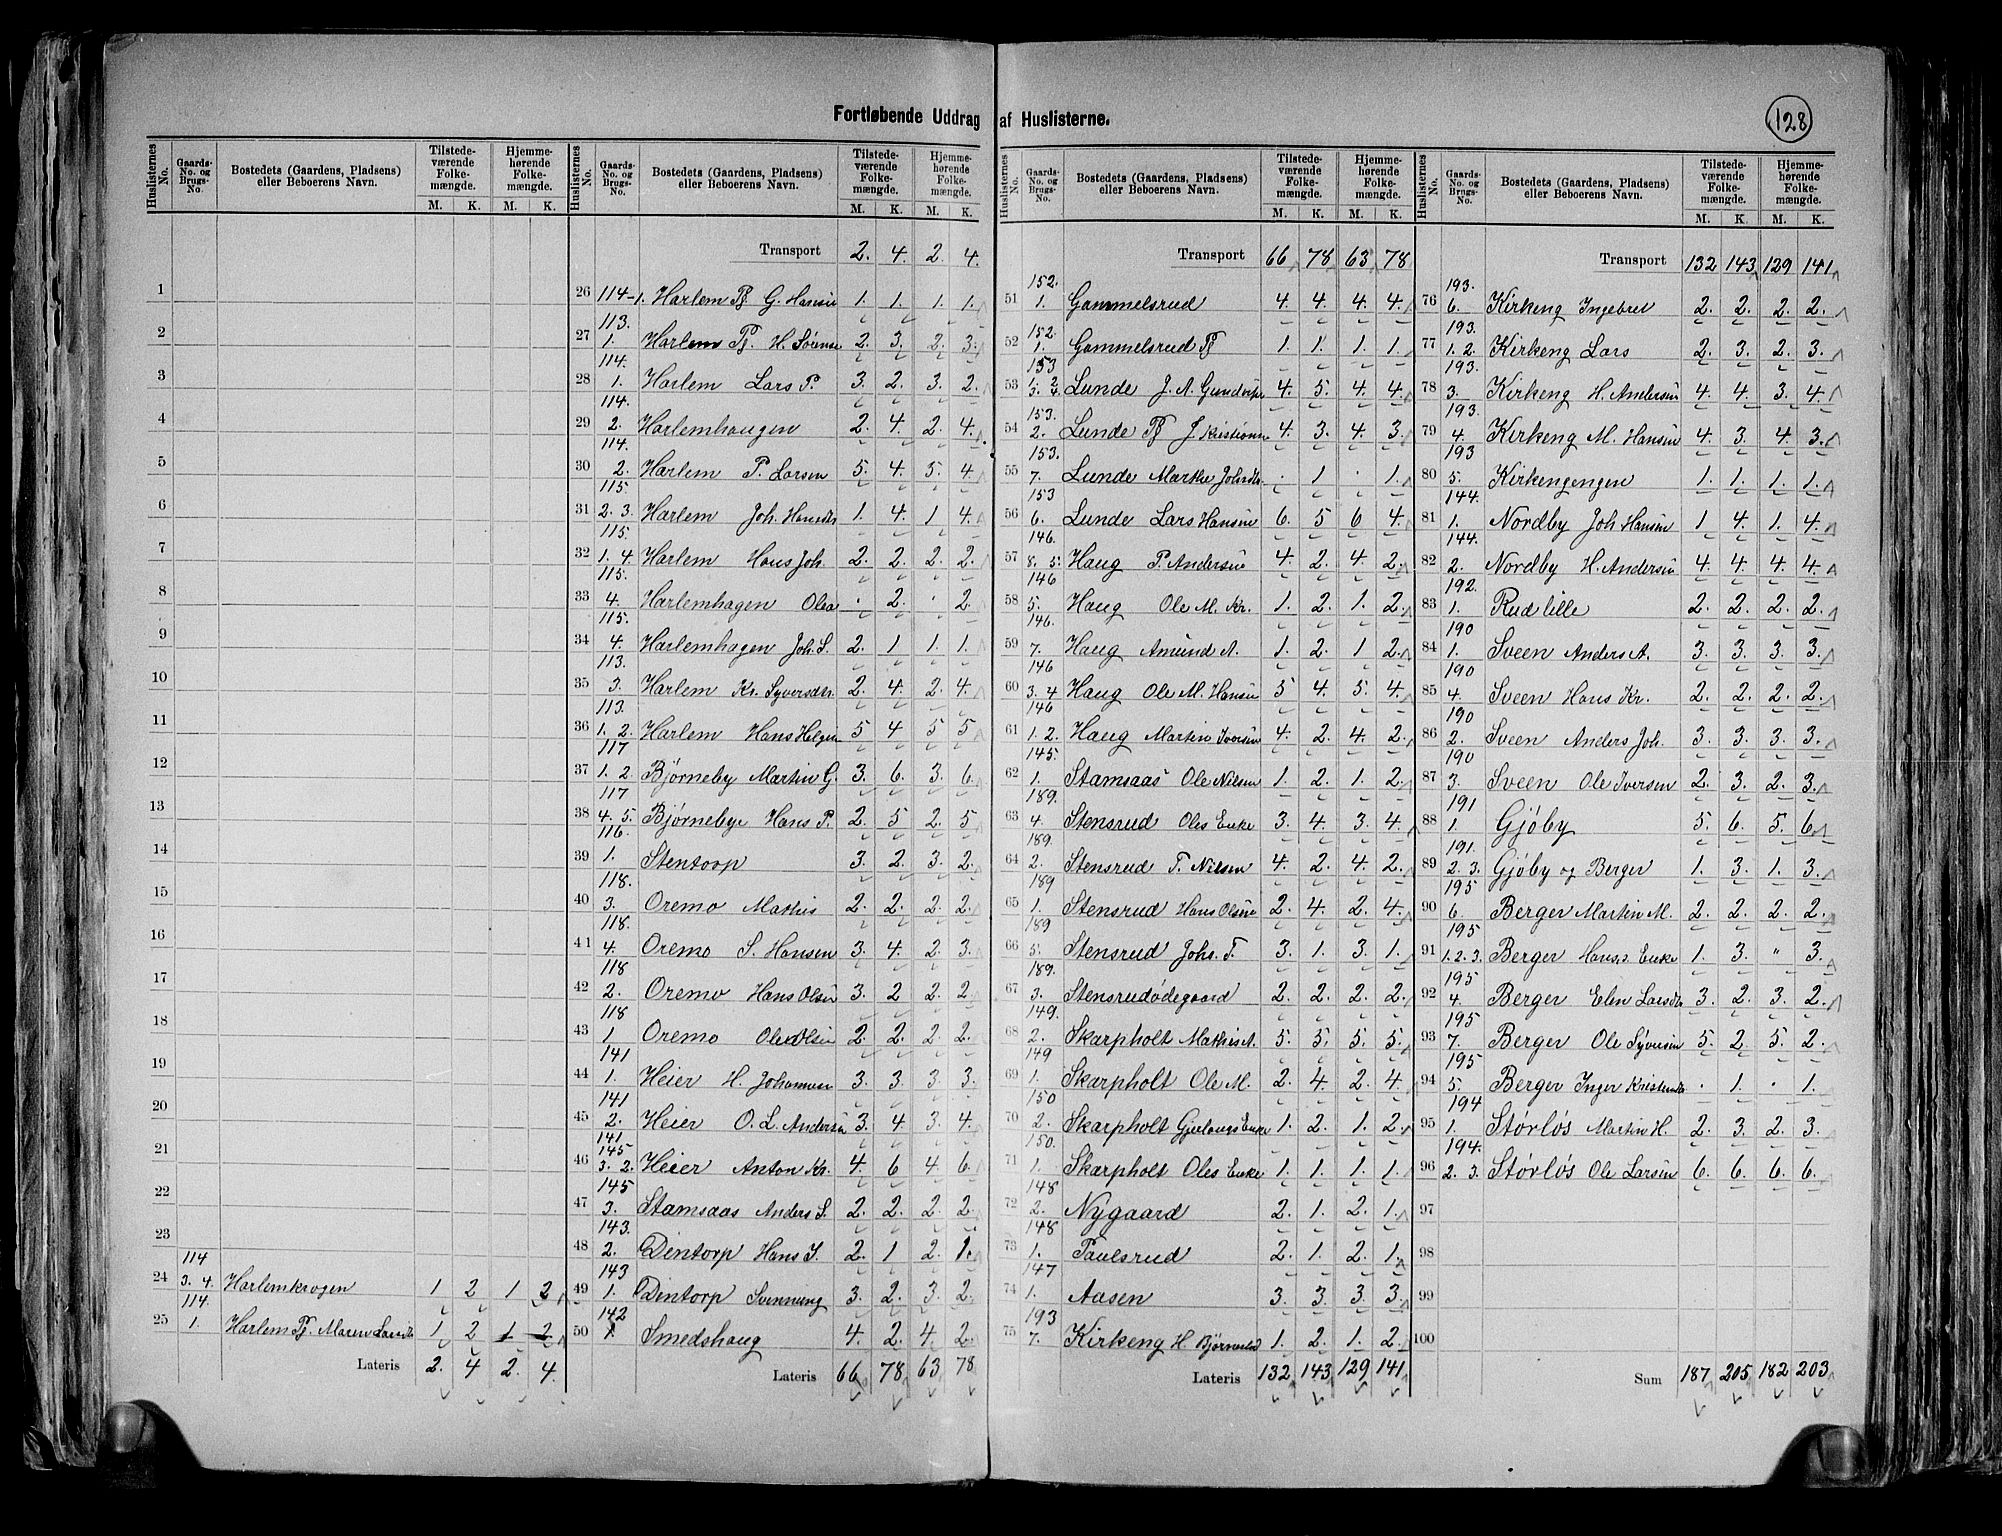 Fortløbende Uddrag af Huslisterne.
128
Huslisternes No. Gaards-No. og Brugs-No. Bostedets (Gaardens, Pladsens) eller Beboerens Navn. Tilstedeværende Folkemængde. M. K. Hjemmehørende Folkemængde. M. K.
1
2
3
4
5
6
7
8
9
10
11
12
13
14
15
16
17
18
19
20
21
22
23
24 114 3. 4. Harlemkrogen 1 2 1 2
25 114. 1. Harlem Pl. Maren 1 2 1 2
Lateris 2. 4 2. 4
Huslisternes No. Gaards-No. og Brugs-No. Bostedets (Gaardens, Pladsens) eller Beboerens Navn. Tilstedeværende Folkemængde. M. K. Hjemmehørende Folkemængde. M. K.
Transport 2. 4. 2. 4.
26 114-1. Harlem Pl. G. Hansen 1. 1. 1. 1.
27 113. 1. Harlem Pl. H. Sørense 2. 3. 2. 3.
28 114. 1. Harlem Lars P. 3. 2. 3. 2.
29 114. 2. Harlemhaugen 2. 4. 2. 4.
30 114. 2. Harlem P. Larsen 5. 4. 5. 4.
31 115. 2. 3. Harlem Joh. Hansdtr 1. 4. 1 4.
32 115. 1. 4. Harlem Hans Joh. 2. 2. 2. 2.
33 115. 4. Harlemhagen Olea . 2. . 2.
34 115. 4. Harlemhagen Joh. S. 2. 1 1. 1.
35 113. 3. Harlem Kr. Syversdtr. 2. 4. 2 4.
36 113. 1. 2. Harlem Hans Helgen 5 4 5 5
37 117 1. 2 Bjørneby Martin G. 3. 6. 3. 6.
38 117 4. 5. Bjørnebye Hans P. 2. 5 2. 5
39 116. 1. Stentorp 3. 2. 3. 2.
40 118. 3. Oremo Mathis 2. 2. 2. 2.
41 118. 4. Oremo S. Hansen 3. 4. 2. 3.
42 118 2. Oremo Hans Olsen 3. 2 2. 2
43 118 1 Oremo Ole Olsen 2. 2. 2. 2.
44 141 1. Heier H. Johannese 3. 3. 3. 3.
45 141 2. Heier O. L. Anders 3. 4 3. 4.
46 141. 145 3. 2. Heier Anton Kr. 4. 6 4 6.
47 145 3. Stamsaas Anders S. 2. 2. 2. 2.
48 143. 2. Dintorp Hans S. 2. 1 2. 1.
49 143 1. Dintorp Svenning 3. 2. 3. 2.
50 142 1. Smedshaug 4. 2. 4. 2.
Lateris 66 78 63 78
Huslisternes No. Gaards-No. og Brugs-No. Bostedets (Gaardens, Pladsens) eller Beboerens Navn. Tilstedeværende Folkemængde. M. K. Hjemmehørende Folkemængde. M. K.
Transport 66 78 63 78
51 152. 1. Gammelsrud 4. 4. 4. 4.
52 152. 1. Gammelsrud Pl 1. 1. 1. 1.
53 153 1. 2. 3. 4. Lunde J. A. 4. 5. 4. 4.
54 153. 2. Lunde Pl J. 4. 3. 4. 3.
55 153. 7. Lunde Marthe . 1 . 1.
56 153 6. Lunde Lars Hansen 6. 5 6 4.
57 146. 8. 5. Haug P. Andersen 4. 2. 4. 2.
58 146 5. Haug Ole M. Kr. 1. 2. 1. 2.
59 146. 7. Haug Amund A. 1. 2. 1 2.
60 146 3. 4 Haug Ole M. Hansen 5 4. 5. 4.
61 146 1. 2. Haug Martin Iversen 4. 2. 4. 2.
62 145. 1. Stamsaas Ole Nilsen 1. 2. 1. 2.
63 189. 4. Stensrud Oles Enke 3. 4. 3. 4.
64 189. 2. Stensrud T. Nilsen 4. 2. 4. 2.
65 189 1. Stensrud Hans Olsen 2. 4. 2. 4.
66 189 5. Stensrud Johs. T. 3. 1. 3. 1.
67 189. 3. Stensrudødegaard 2. 2. 2. 2.
68 149. 2. Skarpholt Mathis A. 5. 5. 5. 5.
69 149 1. Skarpholt Ole M. 2. 4. 2. 4.
70 150 2. Skarpholt Gjerlaugs Enke 1. 2. 1. 2.
71 150. 1. Skarpholt Oles Enke 1. 1. 1. 1.
72 148 2. Nygaard 2. 1. 2. 1.
73 148 1. Paulsrud 2. 1. 2. 1.
74 147 1. Aasen 3. 3. 3. 3.
75 193 7. Kirkeng H. 1. 2. 1. 2.
Lateris 132 143 129 141
Huslisternes No. Gaards-No. og Brugs-No. Bostedets (Gaardens, Pladsens) eller Beboerens Navn. Tilstedeværende Folkemængde. M. K. Hjemmehørende Folkemængde. M. K.
Transport 132 143 129 141
76 193. 6. Kirkeng Ingebret 2. 2. 2. 2.
77 193. 1. 2. Kirkeng Lars 2. 3. 2. 3.
78 193. 3. Kirkeng H. Andersen 4. 4. 3 4.
79 193. 4. Kirkeng M. Hansen 4. 3. 4. 3.
80 193 5. Kirkengengen 1. 1. 1. 1.
81 144. 1. Nordby Joh Hansen 1 4. 1. 4.
82 144. 2. Nordby H. Andersen 4. 4. 4. 4.
83 192. 1. Rud lille 2. 2. 2. 2.
84 190 1. Sveen Anders A. 3. 3. 3. 3.
85 190 4. Sveen Hans Kr. 2. 2. 2. 2.
86 190 2. Sveen Anders Joh. 3. 3. 3. 3.
87 190 3. Sveen Ole Iversen 2. 3. 2. 3.
88 191 1. Gjøby 5. 6. 5. 6.
89 191. 2. 3. Gjøby og Berger 1. 3. 1. 3.
90 195 6. Berger Martin M. 2. 2. 2. 2.
91 195 1. 2. 3. Berger Hans. s. Enke 1. 3. " 3.
92 195 4. Berger Elen Larsdtr 3. 2. 3. 2.
93 195 7. Berger Ole Syversen 5. 2. 5. 2.
94 195 5. Berger Inger . 1. . 1.
95 194 1. Størløs Martin H. 2. 3. 2. 3.
96 194. 2. 3. Størløs Ole Larsen 6. 6. 6. 6.
97
98
99
100
Sum 187 205 182 203